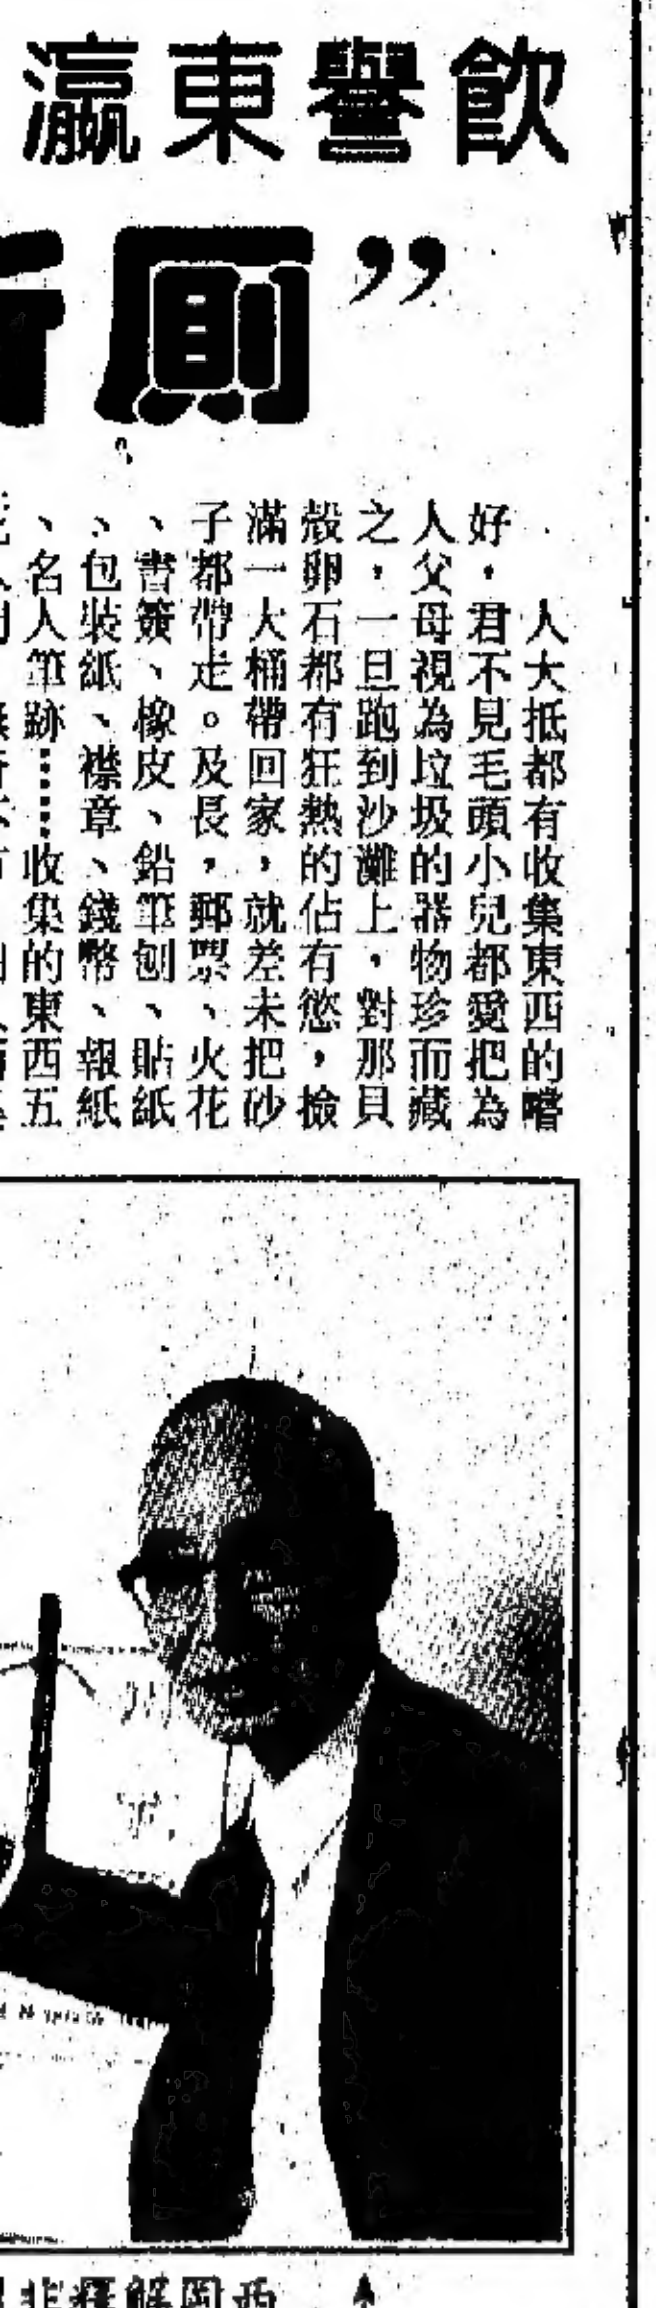 飲譽東瀛
”厠所
人大抵都有收集東西的嗜
好，君不見毛頭小兒都愛把為
人父母視為垃圾的器物珍而藏
之，一旦跑到沙灘上，對那貝
殼卵石都有狂熱的佔有慾，撿
滿一大桶帶回家，就差未把砂
子都帶走。及長，郵票、火花
、書簽、橡皮、鉛筆刨、貼紙
、包裝紙、襟章、錢幣、報紙
、名人筆跡……收集的東西五
西岡